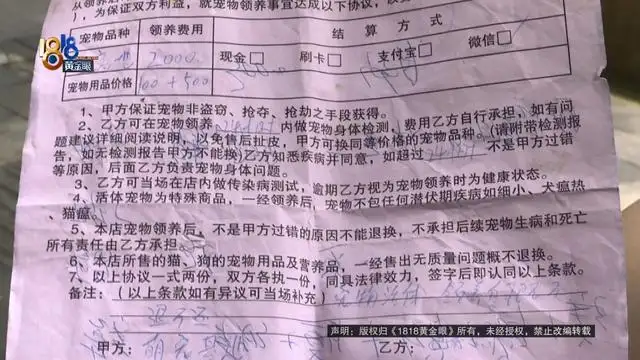 从领养后
),为保证双方利益,就宠物领养事宜达成以下协议,以
宠物品种 领养费用 结算方式
2000 现金□ 刷卡□ 支付宝□ 微信□
宠物用品价格 100+500
1、甲方保证宠物非盗窃、抢夺、抢劫之手段获得。
2、乙方可在宠物领养 内做宠物身体检测,费用乙方自行承担,如有问
题建议详细阅读说明,以免售后扯皮,甲方可换同等价格的宠物品种。(请附带检测报
告,如无检测报告甲方不能换)乙方知悉疾病并同意,如超过 不是甲方过错
等原因,后面乙方负责宠物身体问题。
3、乙方可当场在店内做传染病测试,逾期乙方视为宠物领养时为健康状态。
4、活体宠物为特殊商品,一经领养后,宠物不包任何潜伏期疾病如细小、犬瘟热
、猫瘟。
5、本店宠物领养后,不是甲方过错的原因不能退换,不承担后续宠物生病和死亡
所有责任由乙方承担。
6、本店所售的猫、狗的宠物用品及营养品,一经售出无质量问题概不退换。
7、以上协议一式两份,双方各执一份,同具法律效力,签字后即认同以上条款。
备注:(以上条款如有异议可当场补充)
甲方: 乙方:
1818
黄金眼
声明:版权归《1818黄金眼》所有,未经授权,禁止改编转载